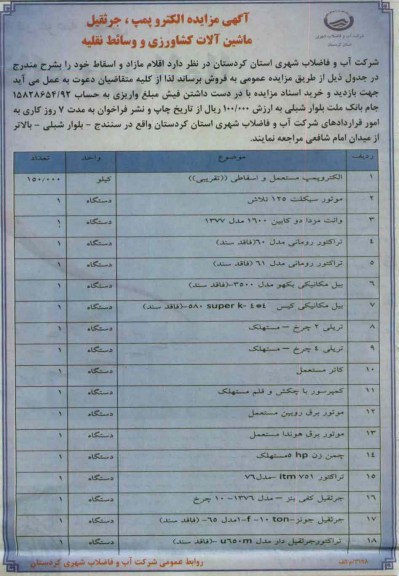 آگهی مزایده الکترو پمپ ، جرثقیل
ماشین آلات کشاورزی و وسائط نقلیه
شرکت آب و فاضلاب شهری
استان کردستان
شرکت آب و فاضلاب شهری استان کردستان در نظر دارد اقلام مازاد و اسقاط خود را بشرح مندرج
در جدول ذیل از طریق مزایده عمومی به فروش برساند لذا از کلیه متقاضیان دعوت به عمل می آید
جهت بازدید و خرید اسناد مزایده با در دست داشتن فیش مبلغ واریزی به حساب ۱۵۸۲۸۶۵۴/۹۲
جام بانک ملت بلوار شبلی به ارزش ۱۰۰/۰۰۰ ریال از تاریخ چاپ و نشر فراخوان به مدت ۷ روز کاری به
امور قراردادهای شرکت آب و فاضلاب شهری استان کردستان واقع در سنندج - بلوار شبلی - بالاتر
از میدان امام شافعی مراجعه نمایند.
ردیف موضوع واحد تعداد
۱ الکتروپمپ مستعمل و اسقاطی ((تقریبی)) کیلو ۱۵۰/۰۰۰
۲ موتور سیکلت ۱۲۵ تلاش دستگاه ۱
۳ وانت مزدا دو کابین ۱۶۰۰ مدل ۱۳۷۷ دستگاه ۱
۴ تراکتور رومانی مدل ۶۰(فاقد سند) دستگاه ۱
۵ تراکتور رومانی مدل ۶۱ (فاقد سند) دستگاه ۱
۶ بیل مکانیکی یکهو مدل ۳۵۰۰-(فاقد سند) دستگاه ۱
۷ بیل مکانیکی کیس ۵۸۰ super k- ٤e٤-(فاقد سند) دستگاه ۱
۸ تریلی ۲ چرخ – مستهلک دستگاه ۱
۹ تریلی ٤ چرخ – مستهلک دستگاه ۱
۱۰ کاتر مستعمل دستگاه ۱
۱۱ کمپرسور با چکش و قلم مستهلک دستگاه ۱
۱۲ موتور برق روبین مستعمل دستگاه ۱
۱۳ موتور برق هوندا مستعمل دستگاه ۱
۱۴ چمن زن ۵ hpمستهلک دستگاه ۱
۱۵ تراکتور itm ۷۵۱ -مدل۷۶ دستگاه ۱
۱۶ جرثقیل کفی بنز – مدل ۱۳۷۶- ۱۰ چرخ دستگاه ۱
۱۷ جرثقیل جونز-f -۱۰ ton-۱مدل ۶۵- (فاقد سند) دستگاه ۱
۱۸ تراکتورجرثقیل دار مدل u۶۵۰m -(فاقد سند) دستگاه ۱
روابط عمومی شرکت آب و فاضلاب شهری کردستان